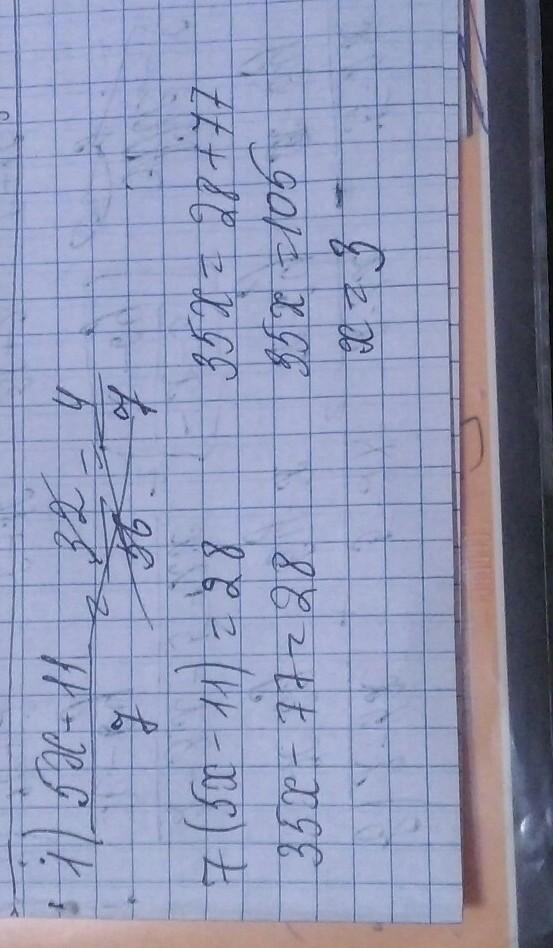 1) 5x - 11 / 7 = 32 / 56 = 4 / 7
7(5x - 11) = 28
35x - 77 = 28
35x = 28 + 77
35x = 105
x = 3